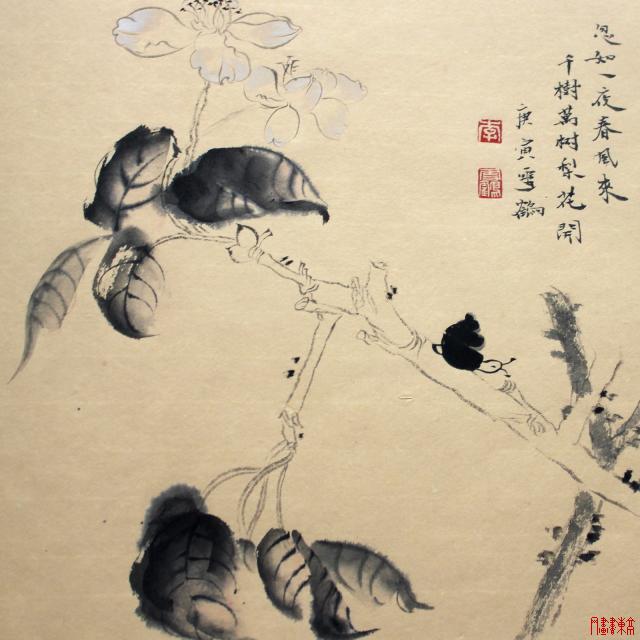 忽如一夜春風來
千樹萬树梨花開
庚寅雪鶴